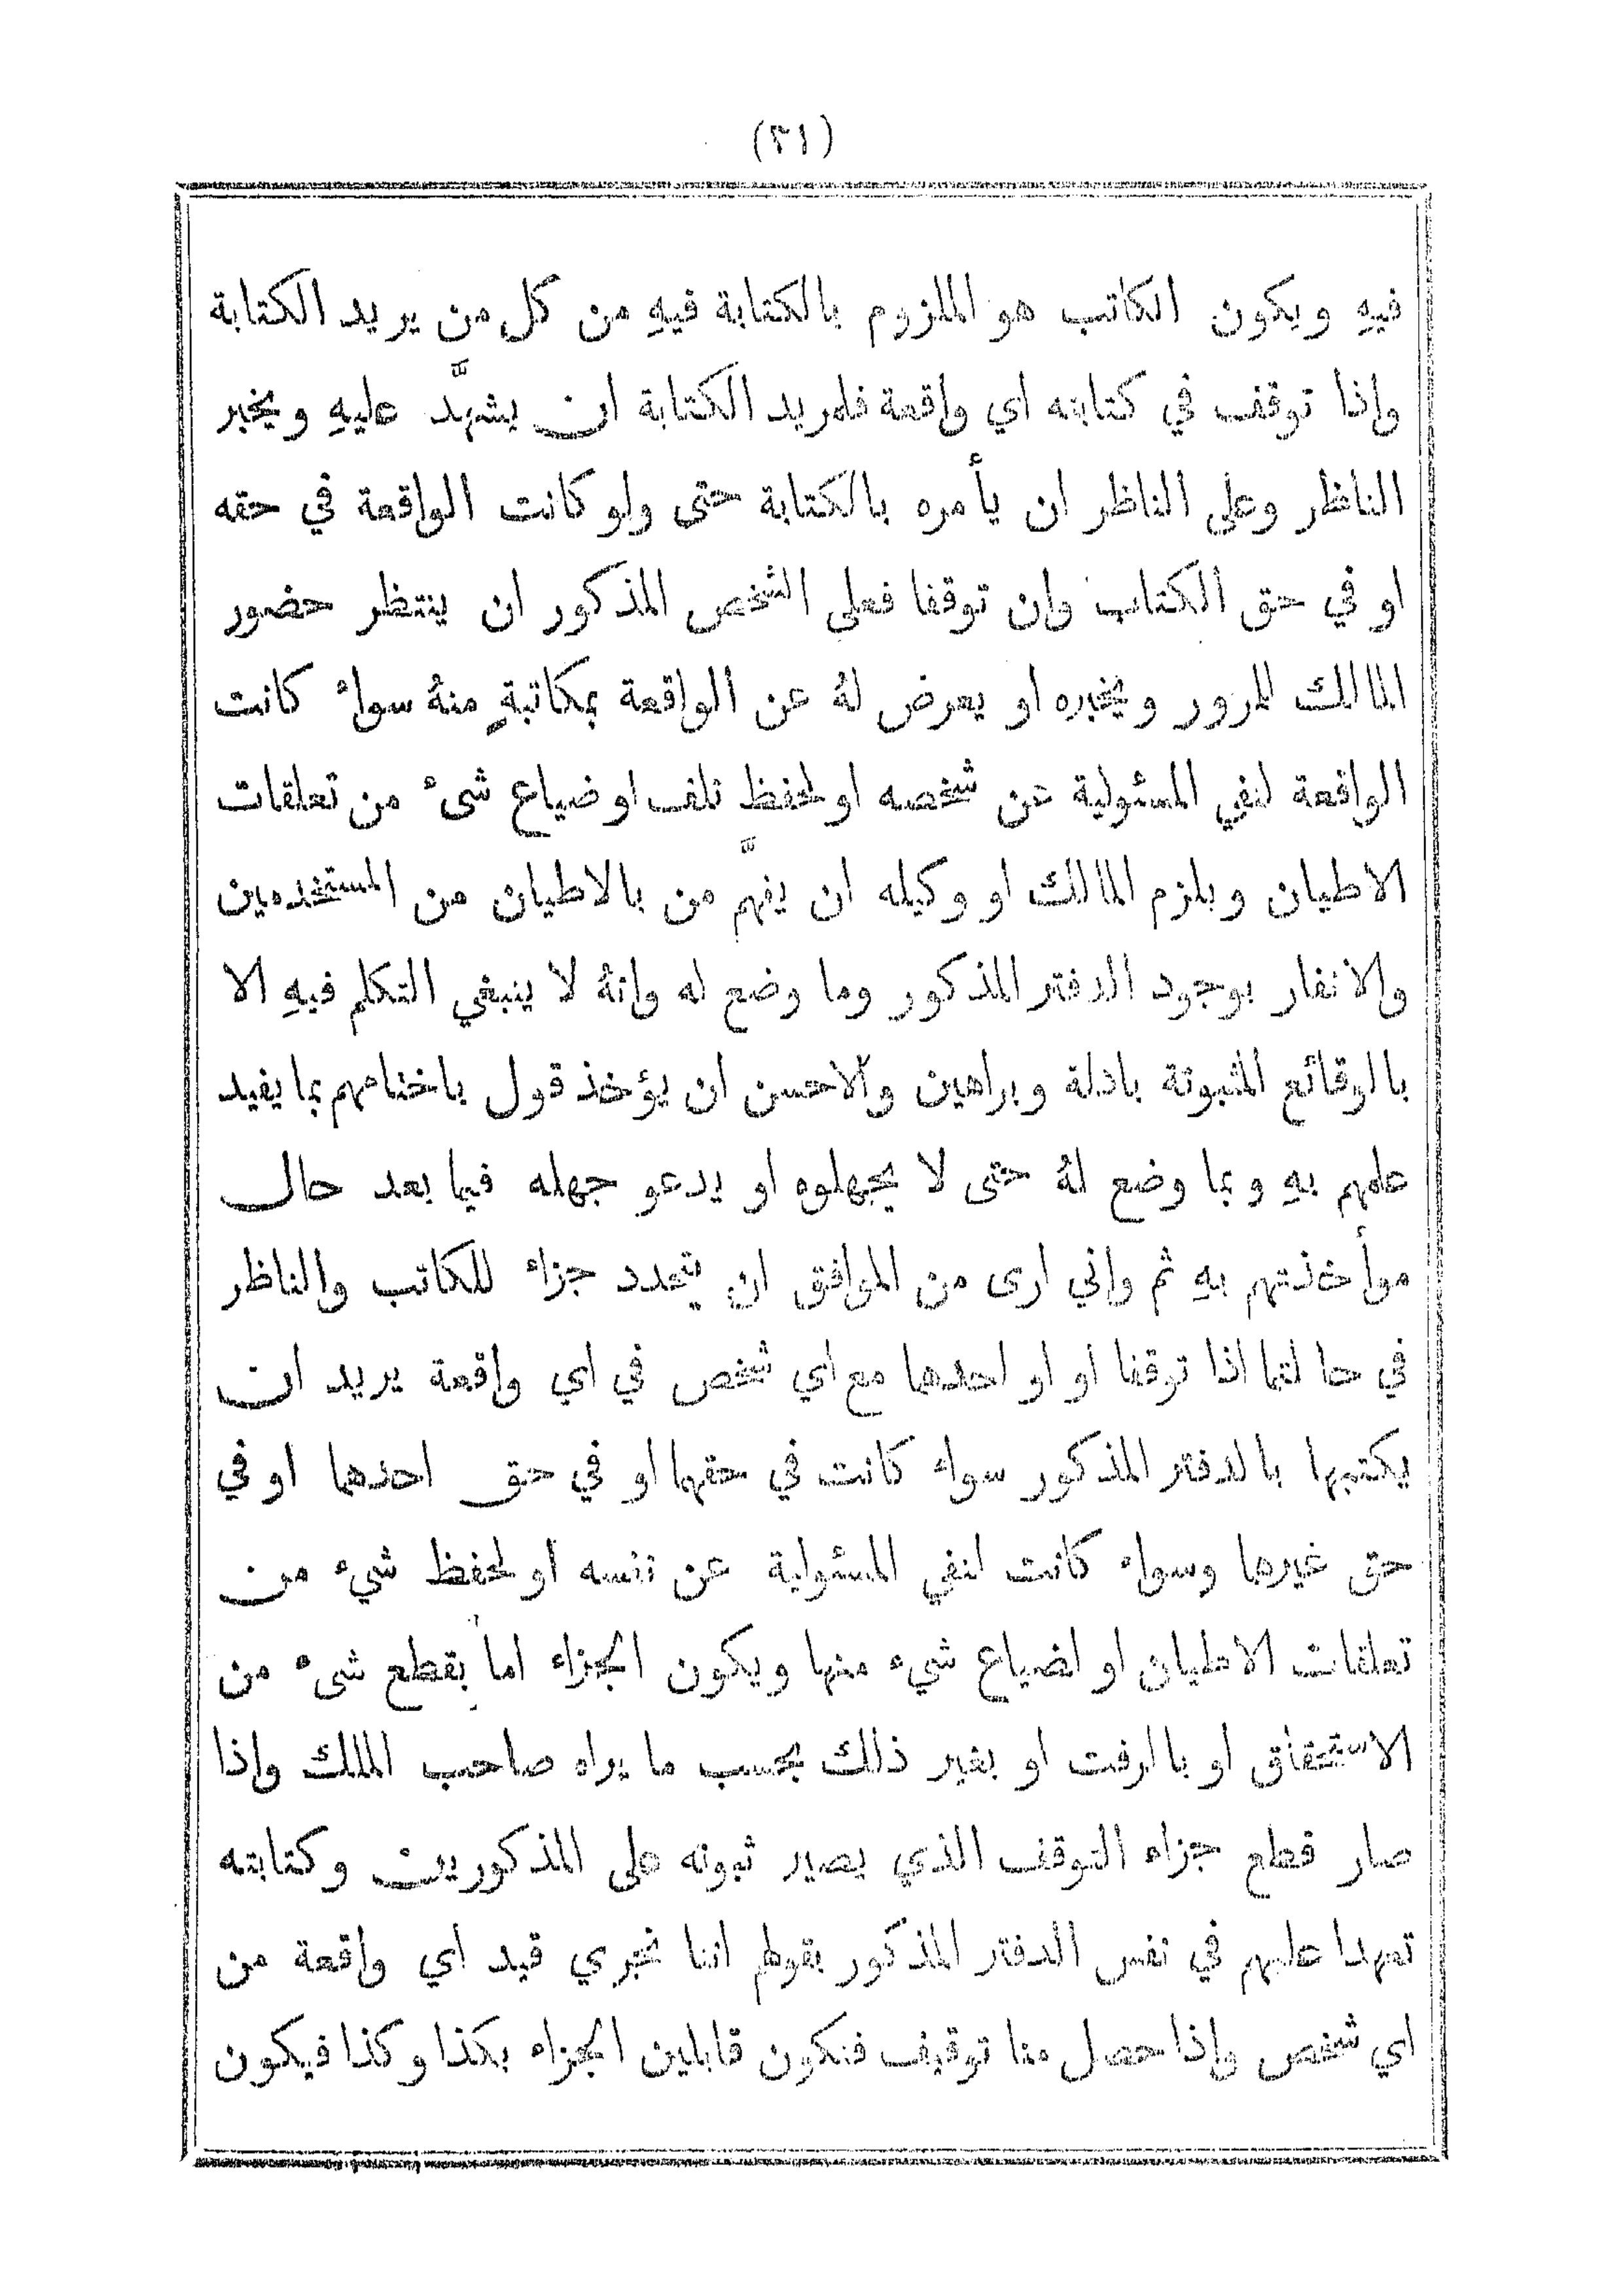 (٢١)
فيهِ ويكون الكاتب هو الملزوم بالكتابة فيهِ من كل من يريد الكتابة
واذا توقف في كتابته اي واقعة فلمريد الكتابة ان يشهَّد عليهِ ويخبر
الناظر وعلى الناظر ان يأمره بالكتابة حتى ولو كانت الواقعة في حقه
او في حق الكتاب وان توقفا فعلى الشخص المذكور ان ينتظر حضور
المالك للمرور ويخبره او يعرض لهُ عن الواقعة بمكاتبةٍ منهُ سواء كانت
الواقعة لنفي المسئولية عن شخصه او لحفظ تلف او ضياع شىء من تعلقات
الاطيان ويلزم المالك او وكيله ان يفهَّم من بالاطيان من المستخدمين
والانفار بوجود الدفتر المذكور وما وضع له وانهُ لا ينبغي التكلم فيهِ الا
بالوقائع المثبوتة بادلة وبراهين والاحسن ان يؤخذ قول باختامهم بما يفيد
علمهم بهِ وبما وضع لهُ حتى لا يجهلوه او يدعو جهله فيما بعد حال
موأخذتهم بهِ ثم واني ارى من الموافق ان يتحدد جزاء للكاتب والناظر
في حالتما اذا توقفا او او احدهما مع اي شخص في اي واقعة يريد ان
يكتبها بالدفتر المذكور سواء كانت في حقهما او في حق احدهما او في
حق غيرهما وسواء كانت لنفي المسئولية عن نفسه او لحفظ شيء من
تعلقات الاطيان او لضياع شيء منها ويكون الجزاء اما بقطع شىء من
الاستحقاق او بالرفت او بغير ذلك بحسب ما يراه صاحب الملك واذا
صار قطع جزاء التوقف الذي يصير ثبوته على المذكورين وكتابته
تعهدا عليهم في نفس الدفتر المذكور بقولهم اننا نجري قيد اي واقعة من
اي شخص واذا حصل منا توقيف فنكون قابلين الجزاء بكذا وكذا فيكون